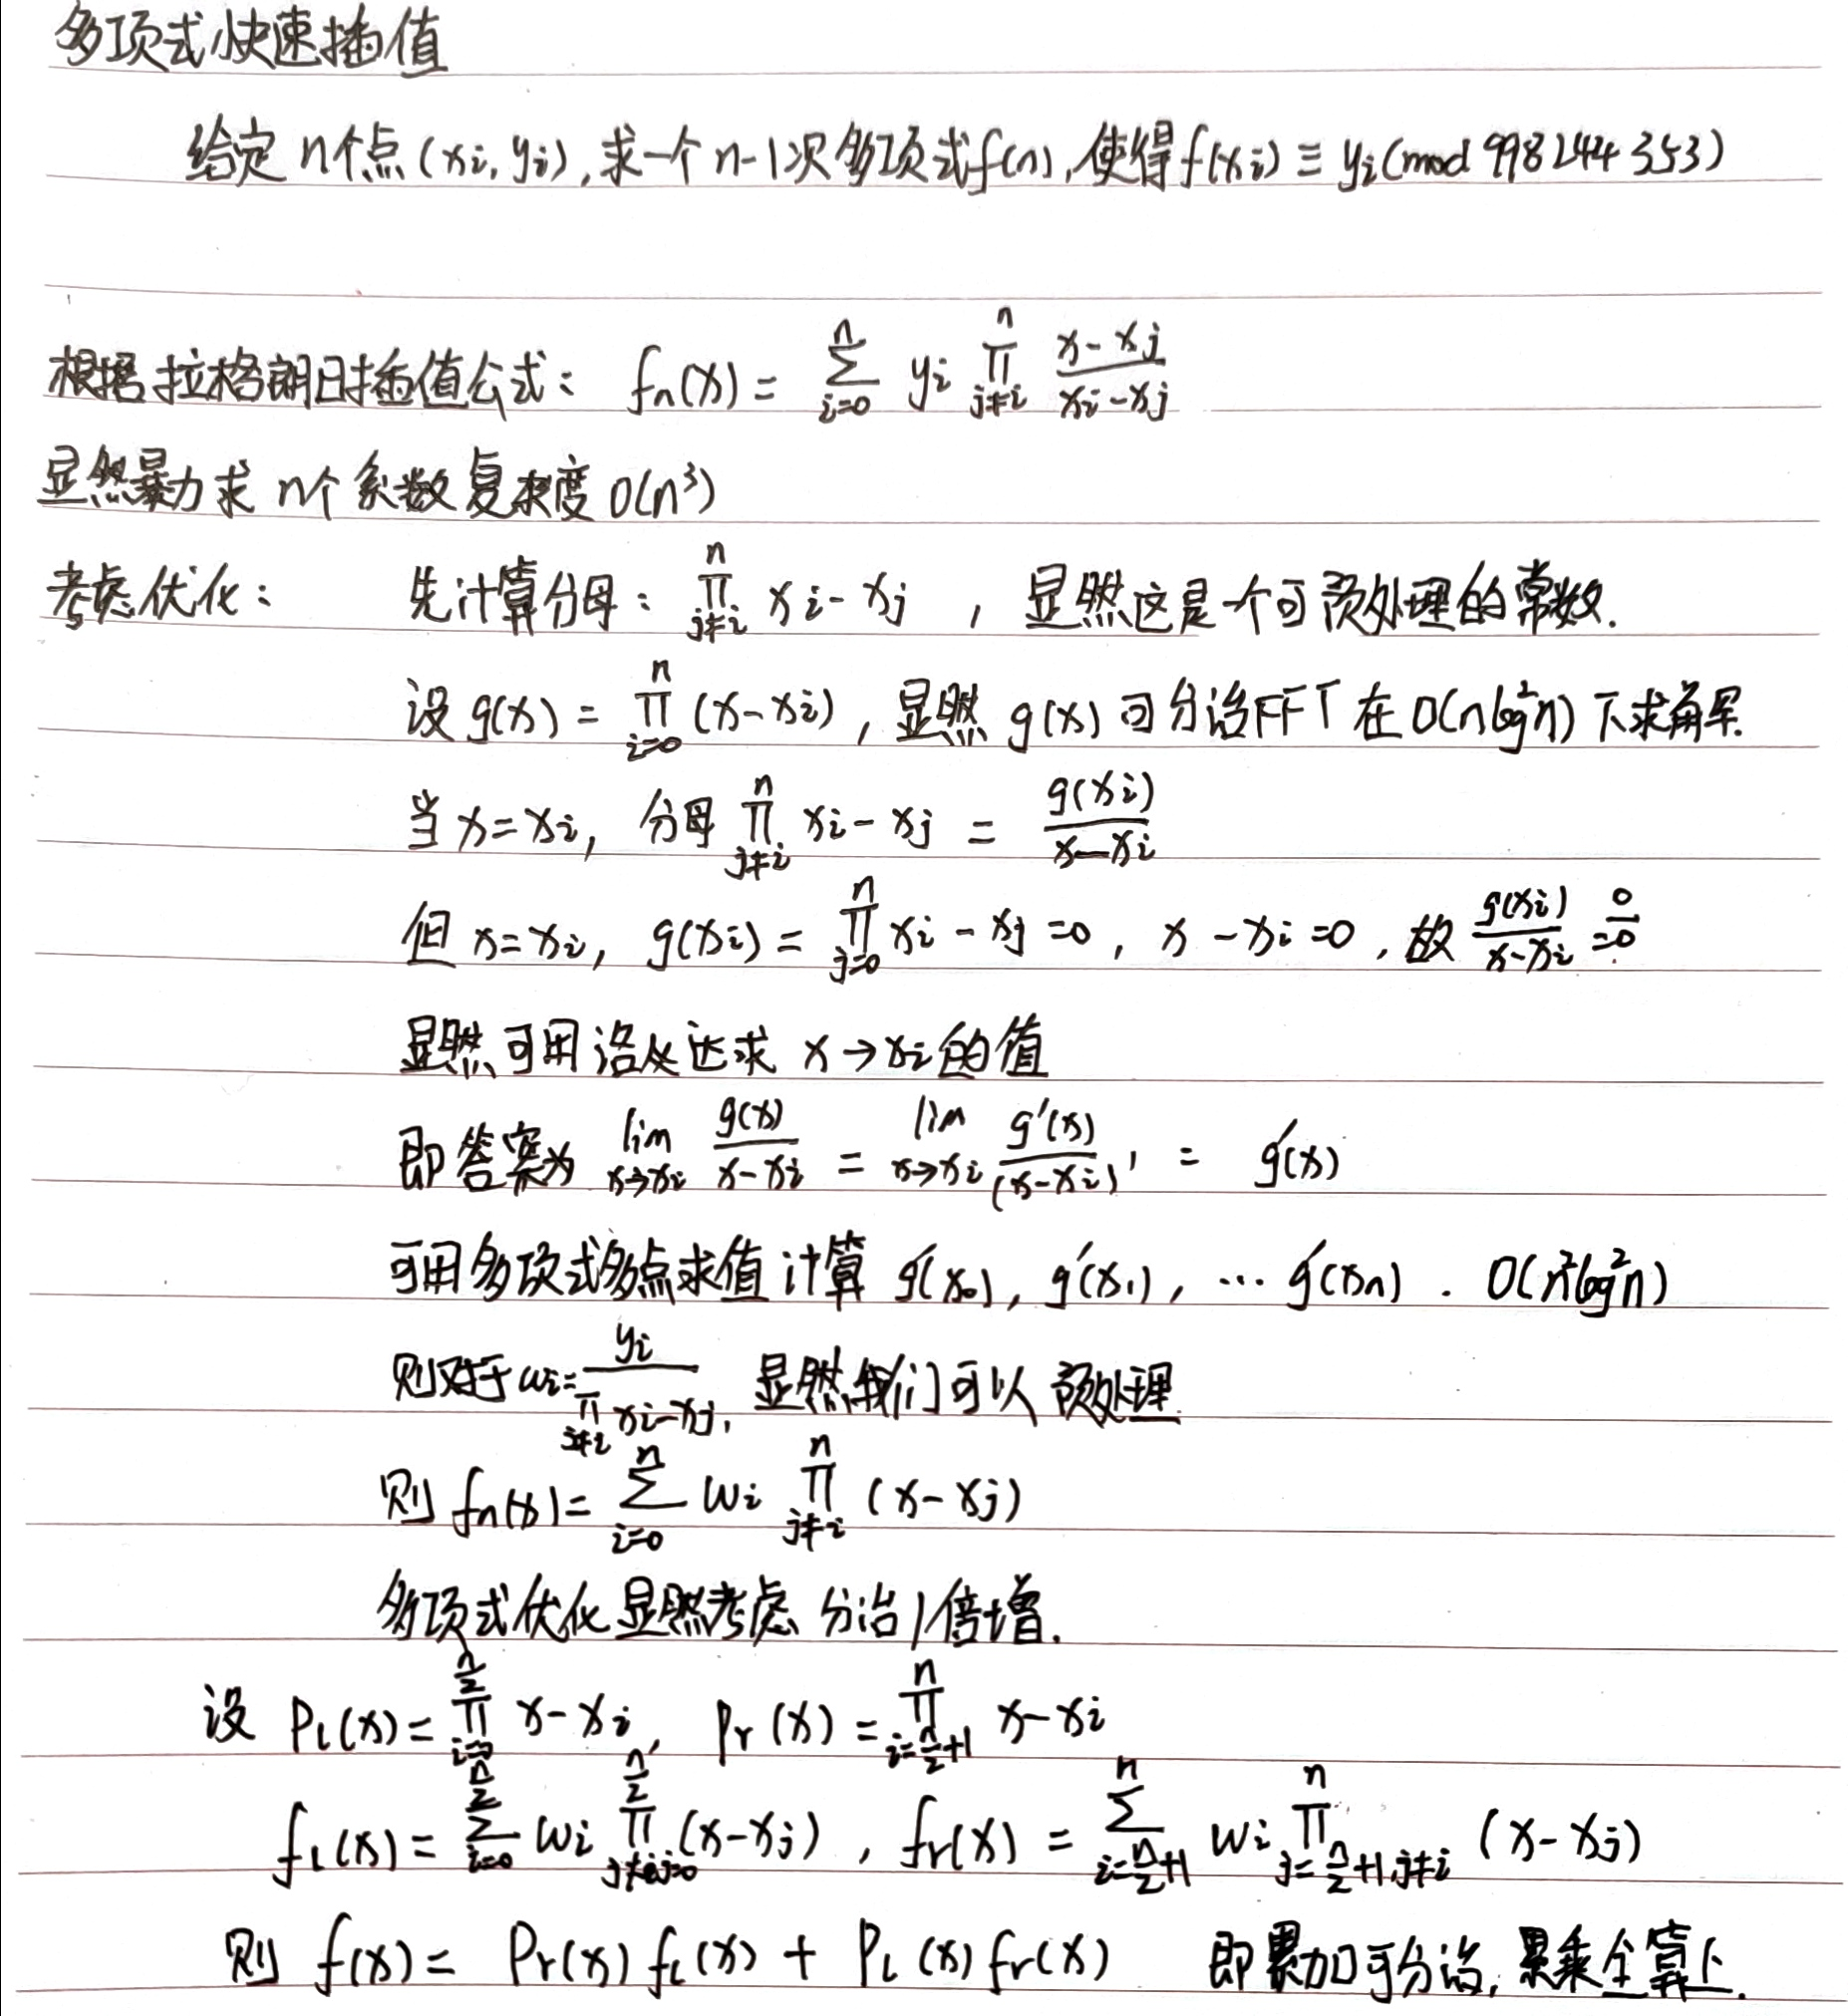 多项式快速插值
给定 n个点 (xi, yi), 求一个 n-1次多项式f(n), 使得f(xi) ≡ yi (mod 998244353)
根据拉格朗日插值公式: fn(x) = \sum_{i=0}^{n} yi \prod_{j≠i}^{n} \frac{x-xj}{xi-xj}
显然暴力求 n个系数复杂度 O(n³)
考虑优化: 先计算分母: \prod_{j≠i}^{n} xi-xj , 显然这是一个可预处理的常数.
设 g(x) = \prod_{i=0}^{n} (x-xi), 显然 g(x) 可分治FFT 在 O(n log²n) 下求解.
当 x=xi, 分母 \prod_{j≠i}^{n} xi-xj = \frac{g(xi)}{x-xi}
但 x=xi, g(xi) = \prod_{j=0}^{n} xi-xj =0, x-xi=0, 故 \frac{g(xi)}{x-xi} = \frac{0}{0}.
显然可用洛必达求 x→xi的值
即答案为 \lim_{x→xi} \frac{g(x)}{x-xi} = \lim_{x→xi} \frac{g'(x)}{(x-xi)'} = g'(x)
可用多项式多点求值计算 g'(x0), g'(x1), ... g'(xn) . O(n²log²n)
则对于 wi = \frac{yi}{\prod_{j≠i} xi-xj}, 显然我们可以预处理.
则 fn(x) = \sum_{i=0}^{n} wi \prod_{j≠i}^{n} (x-xj)
多项式优化显然考虑 分治/倍增.
设 Pl(x) = \prod_{i=0}^{\frac{n}{2}} x-xi, Pr(x) = \prod_{i=\frac{n}{2}+1}^{n} x-xi
fl(x) = \sum_{i=0}^{\frac{n}{2}} wi \prod_{j≠i,j=0}^{\frac{n}{2}} (x-xj), fr(x) = \sum_{i=\frac{n}{2}+1}^{n} wi \prod_{j=\frac{n}{2}+1,j≠i}^{n} (x-xj)
则 f(x) = Pr(x) fl(x) + Pl(x) fr(x) 即累加可分治, 累乘全算上.